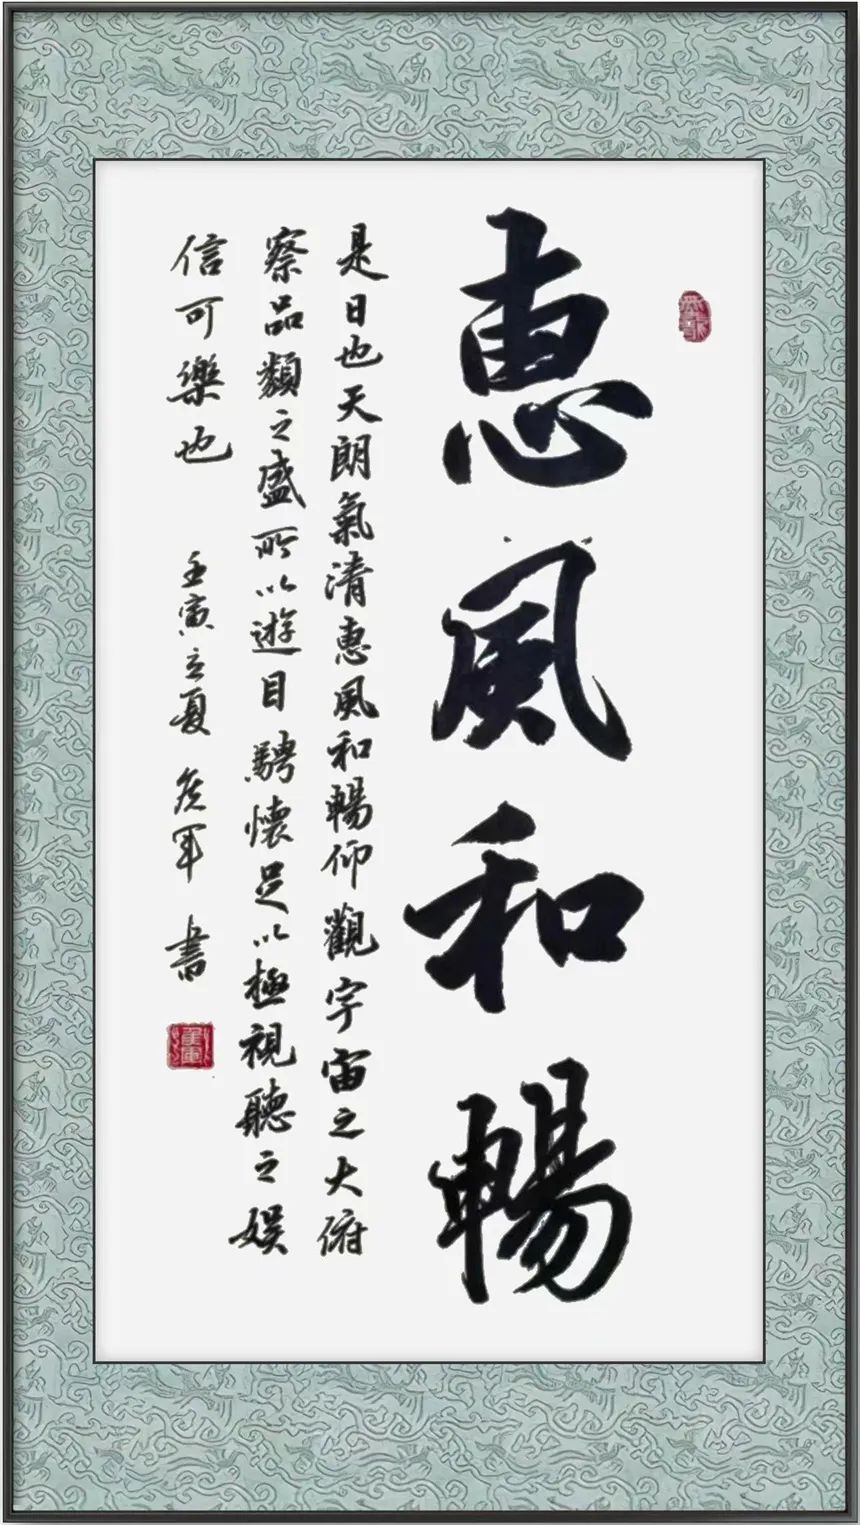 惠風和暢
是日也天朗氣清惠風和暢仰觀宇宙之大俯
察品類之盛所以遊目騁懷足以極視聽之娛
信可樂也 壬寅立夏 军 書